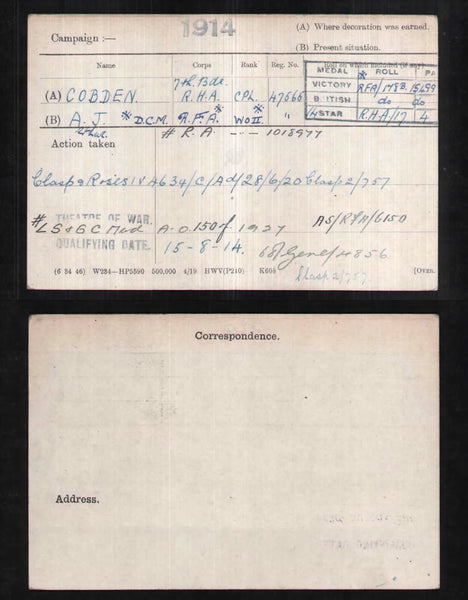 1914
Campaign :—
(A) Where decoration was earned.
(B) Present situation.
Name Corps Rank Reg. No. Roll on which included (if any)
MEDAL * ROLL PA
VICTORY RFA/178B. 15699
BRITISH do do
14 STAR R.H.A/17 4
7th. Bde.
(A) COBDEN. R.H.A. CPL. 47566
(B) A. J. * D.C.M. * R.F.A. * WOII "
# R.A. --- 1018977
Action taken
Clasp & Roses IV 4634/C/Ad/28/6/20 Clasp 2/757
THEATRE OF WAR.
# LS & GC Med A.O. 150 of 1927 AS/RFA/6150
QUALIFYING DATE. 15-8-14. 68/Genl/4856
(6 34 46) W234—HP5590 500,000 4/19 HWV(P240) K608 [Over.
Clasp 2/757
Correspondence.
Address.